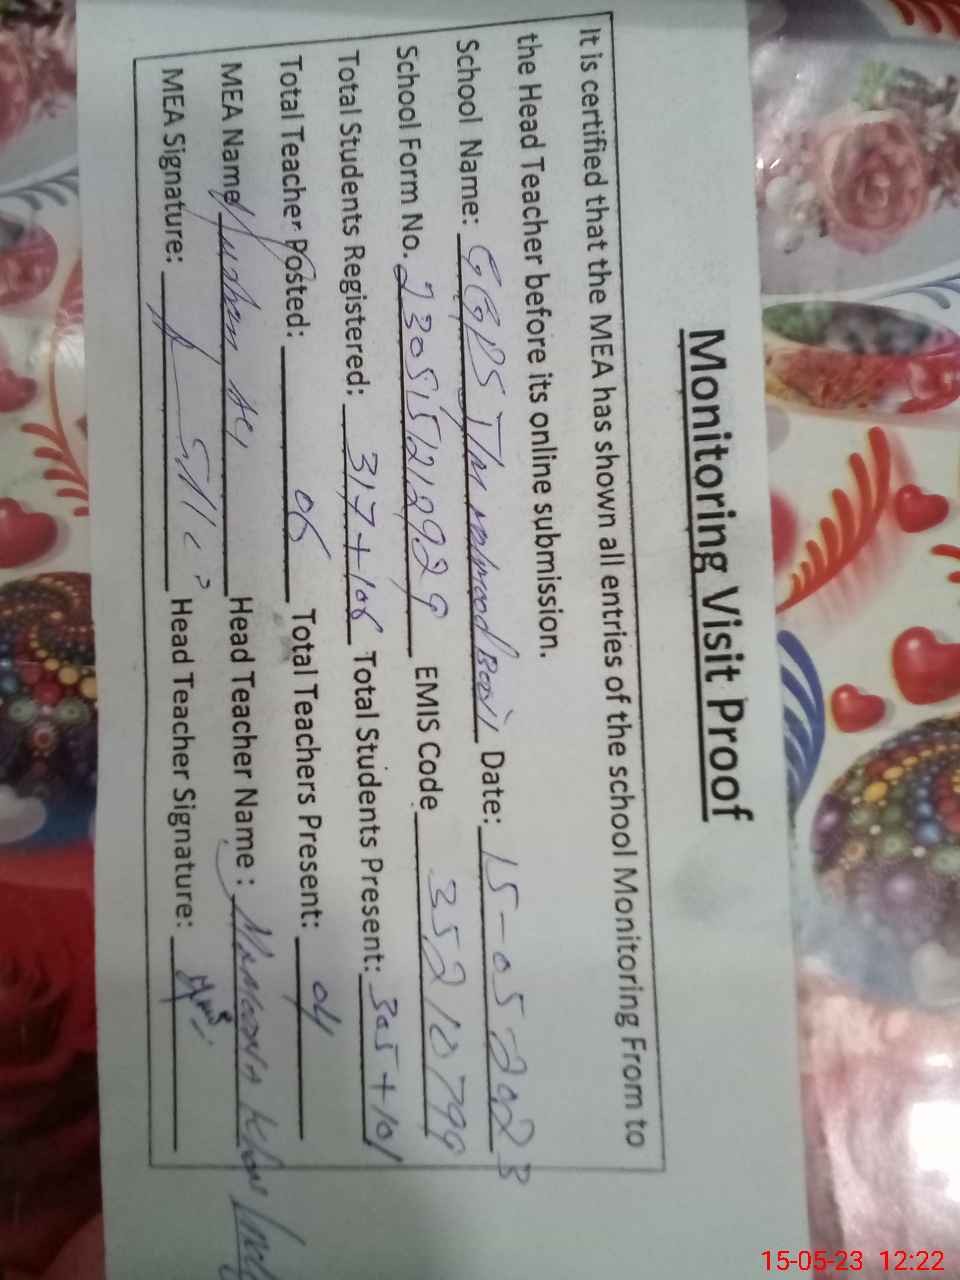 Monitoring Visit Proof
It is certified that the MEA has shown all entries of the school Monitoring From to
the Head Teacher before its online submission.
School Name: GGPS Date: 15-05-2023
School Form No. 230515212929 EMIS Code 35210799
Total Students Registered: 317+106 Total Students Present: 305+101
Total Teacher Posted: 06 Total Teachers Present: 04
MEA Name Head Teacher Name: Khan
MEA Signature: Head Teacher Signature:
15-05-23 12:22